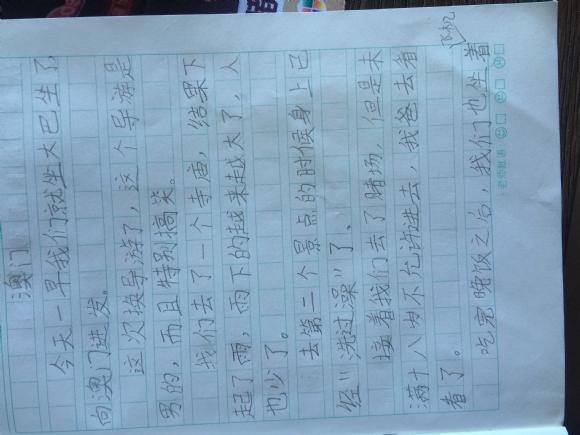 澳门
今天一早我们就坐大巴坐了,
向澳门进发。
这次换导游了,这个导游是
男的,而且特别搞笑。
我们去了一个寺庙,结果下
起了雨,雨下的越来越大了,人
也少了。
去第二个景点的时候身上已
经"洗过澡"了、
接着我们去了赌场,但是未
满十八岁不允许进去,我爸去看
看了。
飞机
吃完晚饭之后,我们也坐着
老师批语